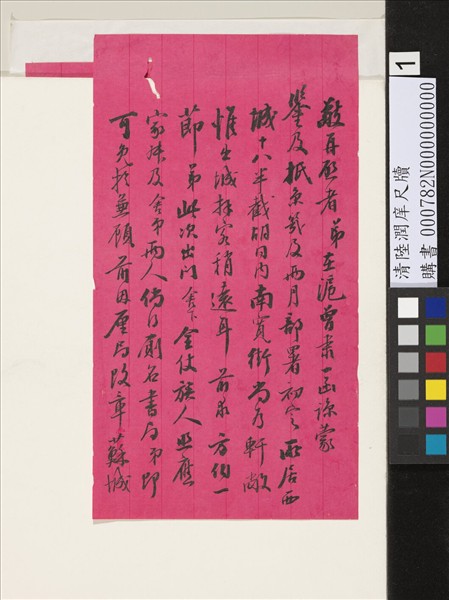 敬再啟者弟在滬曾肅一函諒蒙
鑒及抵京歲及兩月部署初定所居西
城十八半截胡同內南寬街尚為軒敞
惟出城拜客稍遠耳前求方伯一
節弟此次出門舍下全仗族人照應
家姪及舍弟兩人倘得廁名書局弟即
可免於兼顧前因厘局改章蘇城
清陸潤庠尺牘
購書 000782N000000000
1